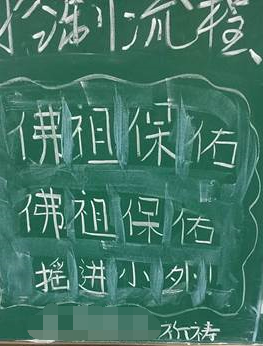 控制流程
佛祖保佑
佛祖保佑
摇进小外!
祈祷